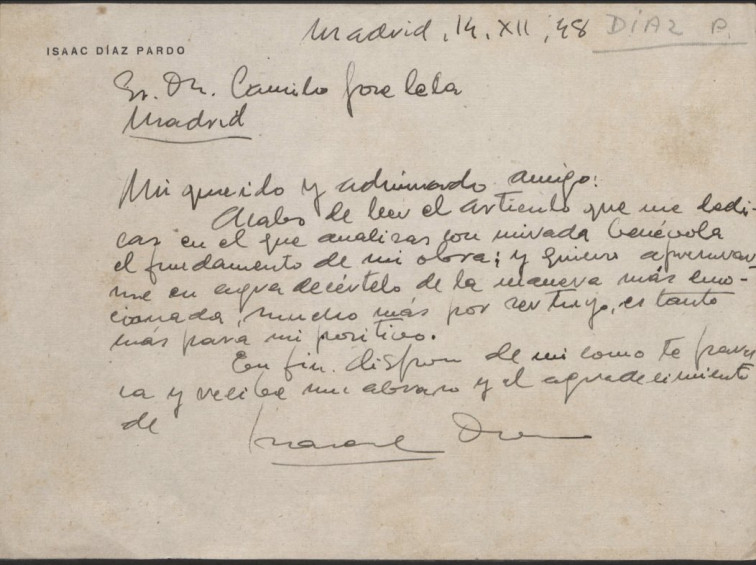 Madrid, 14, XII, 48
DÍAZ P.
ISAAC DÍAZ PARDO
Sr. Dn. Camilo Jose Cela
Madrid
Mi querido y admirado amigo:
Acabo de leer el artículo que me dedi-
cas en el que analizas con mirada benévola
el fundamento de mi obra; y quiero apresurar
me en agradecértelo de la manera más emo-
cionada, mucho más por ser tuyo, es tanto
más para mi positivo.
En fin, dispon de mi como te
y recibe un abrazo y el agradecimiento
de